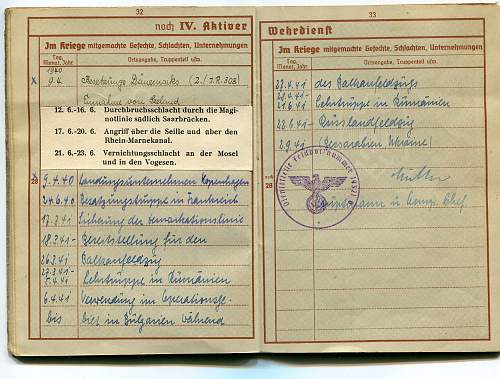 32
noch IV. Aktiver
Im Kriege mitgemachte Gefechte, Schlachten, Unternehmungen
Tag, Monat, Jahr
Ortsangabe, Truppenteil usw.
1940
x 9.4. Besetzung Dänemarks (2./I.R.308)
Einnahme von Seeland
12. 6.-16. 6. Durchbruchsschlacht durch die Magi-
notlinie südlich Saarbrücken.
17. 6.-20. 6. Angriff über die Seille und über den
Rhein-Marnekanal.
21. 6.-23. 6. Vernichtungsschlacht an der Mosel
und in den Vogesen.
28
x 9.4.40 Landungsunternehmen Kopenhagen
24.6.40 Besatzungstruppe in Frankreich
17.3.41 Sicherung der Demarkationslinie
18.3.41- Bereitstellung für den
26.3.41 Balkanfeldzug
27.3.41-
5.4.41 Lehrtruppe in Rumänien
6.4.41 Verwendung im Operationsge-
bis biet in Bulgarien während
33
Wehrdienst
Im Kriege mitgemachte Gefechte, Schlachten, Unternehmungen
Tag, Monat, Jahr
Ortsangabe, Truppenteil usw.
27.4.41 des Balkanfeldzugs
28.4.41-
21.6.41 Lehrtruppe in Rumänien
22.6.41- Russlandfeldzug
2.9.41 (Bessarabien Ukraine)
noch
28
Hauptmann u. Komp. Chef